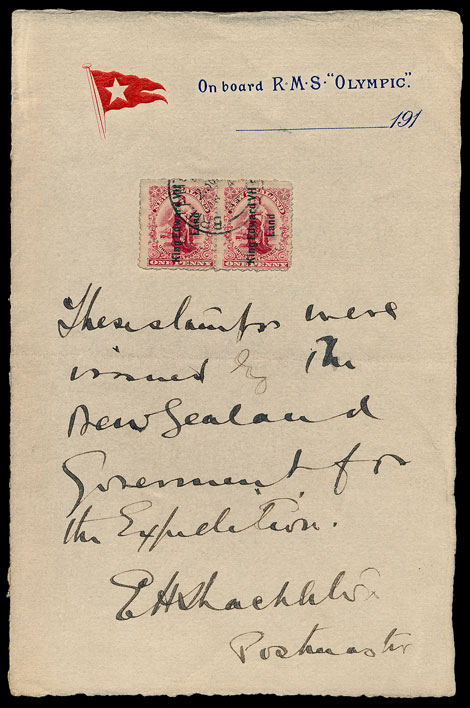 On board R·M·S·"OLYMPIC".
191
NEW ZEALAND NEW ZEALAND
King Edward VII Land King Edward VII Land
ONE PENNY ONE PENNY
These stamps were
issued by the
New Zealand
Goverment for
the Expedition.
EHShackleton
Postmaster